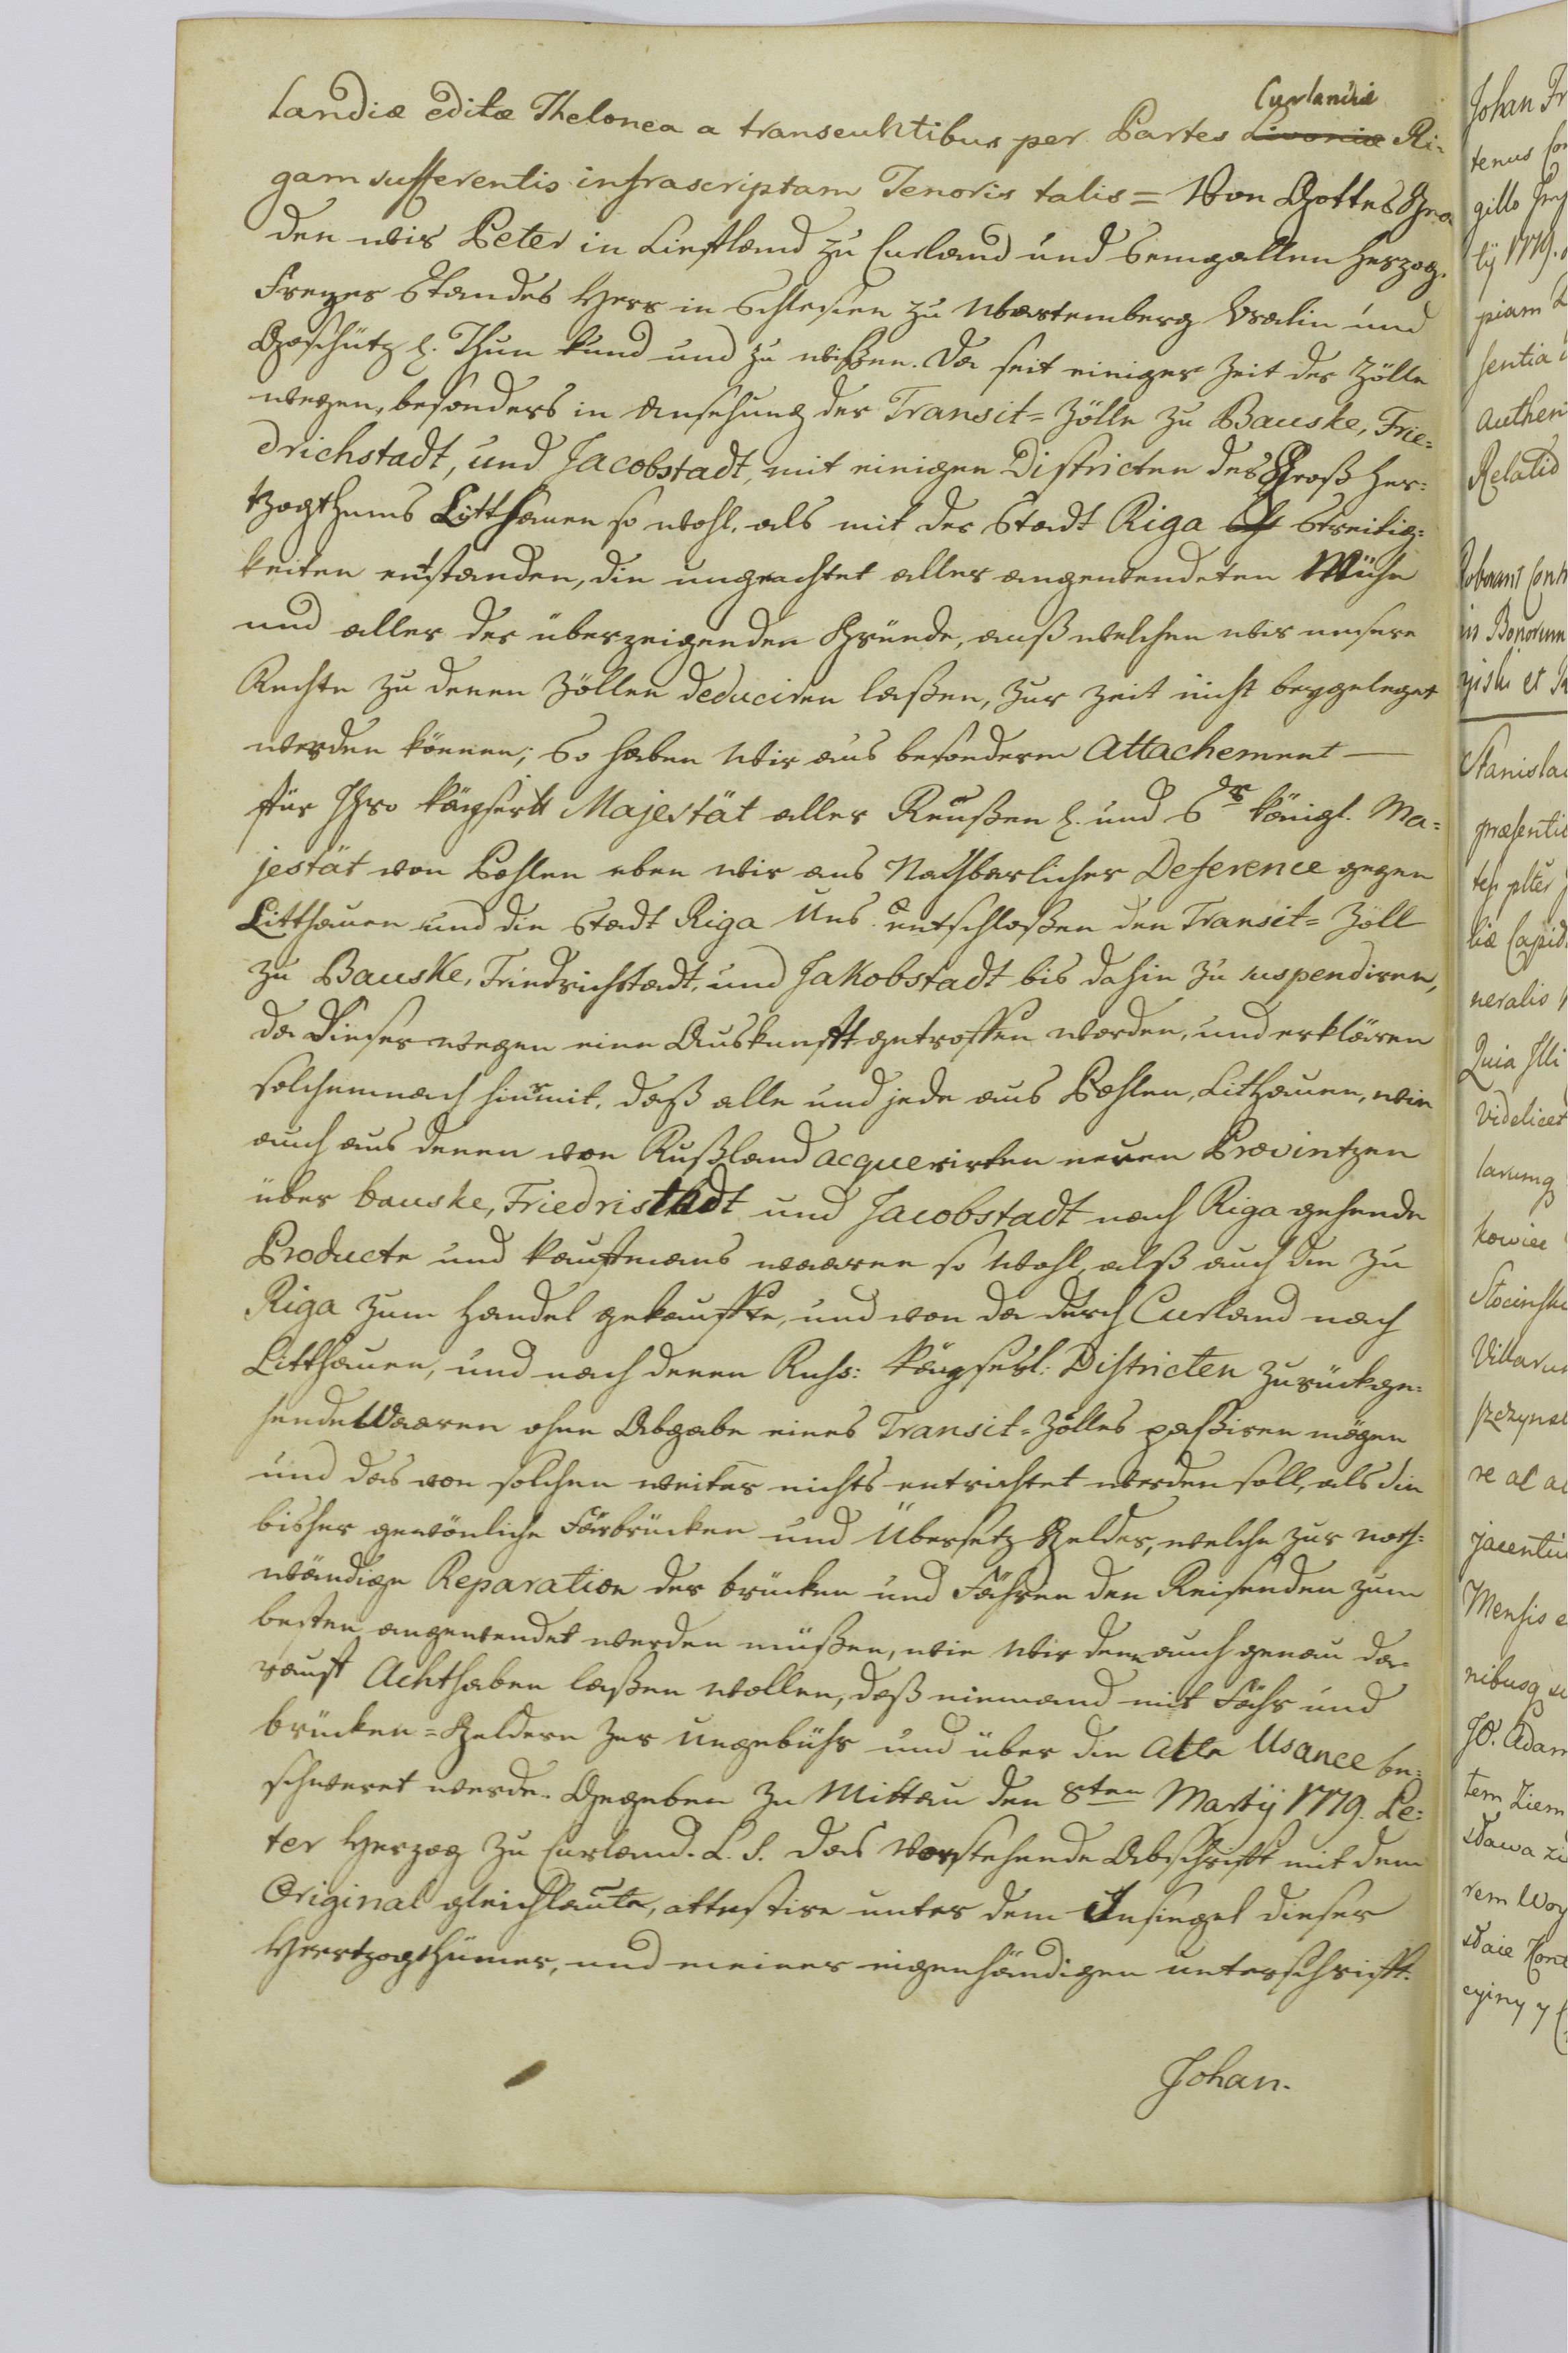 Curlandiæ
landiæ editæ Thelonea a transeuntibus per Partes Livoniæ Ri-
gam sufferentis infrascriptam Tenoris talis = Von Gottes Gna
den wir Peter in Liefland zu Curland und Semgallen Herzog.
Freyer Standes Herr in Schlesien zu Wartemberg Bralin und
Goschütz p. Thun kund und zu wißen. Da seit einiger Zeit der Zölle
wegen, besonders in Ansehung der Transit-Zölle zu Bauske, Frie-
drichstadt, und Jacobstadt, mit einigen Districten des Groß Her-
tzogthums Litthauen so wohl, als mit der Stadt Riga Streitig-
keiten entstanden, die ungeachtet aller angewendeten Mühe
und aller der überzeigenden Gründe, auß welchen wir unsere
Rechte zu denen Zöllen deduciren laßen, zur Zeit nicht beygeleget
werden können; So haben Wir aus besonderm Attachement —
für Ihro Kayserll Majestät aller Reußen p. und Sr Königl. Ma-
jestät von Pohlen eben wir aus Nachbarlicher Deference gegen
Litthauen und die Stadt Riga Uns entschloßen den Transit-Zoll
zu Bauske, Friedrichstadt, und Jakobstadt bis dahin zu suspendiren,
da Dieserwegen eine Auskunfft getroffen worden, und erklären
solchemnach hiermit, daß alle und jede aus Pohlen, Lithauen, wie
auch aus denen von Rußland acquerirten neuen Provintzen
über bauske, Friedristadt und Jacobstadt nach Riga gehende
Producte und Kaufmans waaren so wohl, alß auch die zu
Riga zum Handel gekauffte, und von da durch Curland nach
Litthauen, und nach denen Russ: Kayserl: Districten zurückge-
hende Waaren ohne Abgabe eines Transit-Zolles paßiren mögen
und das von solchen weiter nichts entrichtet werden soll, als die
bisher gewönliche Färbrücken und Übersetz Gelder, welche zur noth-
wändigen Reparation der brücken und Fähren den Reisenden zum
besten angewendet werden müßen, wie Wir denn auch genau da-
rauf Achthaben laßen wollen, daß niemand mit Fähr und
brücken-Geldern zur ungebühr und über die Alte Usance be-
schweret werde. Gegeben zu Mittau den 8ten Martÿ 1779. Pe-
ter Herzog zu Curland. L. S. Das vorstehende Abschrifft mit dem
Original gleichlaute, attestire unter dem Insiegel dieser
Herrtzogthümer, und meiner eigenhändigen unterschrifft.
Johan.
Johan Fr
tenus
gillo
lÿ 1779.
piam
sentia
Authen
Relatio
Roborant
is Bonorum
et
Stanislaw
præsentib
plter
liæ Capid
neralis
Quia Illi
Videlicet
larumq
kowice
Stocinski
Villarum
szczyna
re al ac
jacentiu
Mensis
nibusq
Adam
tem Ziem
rem Woy